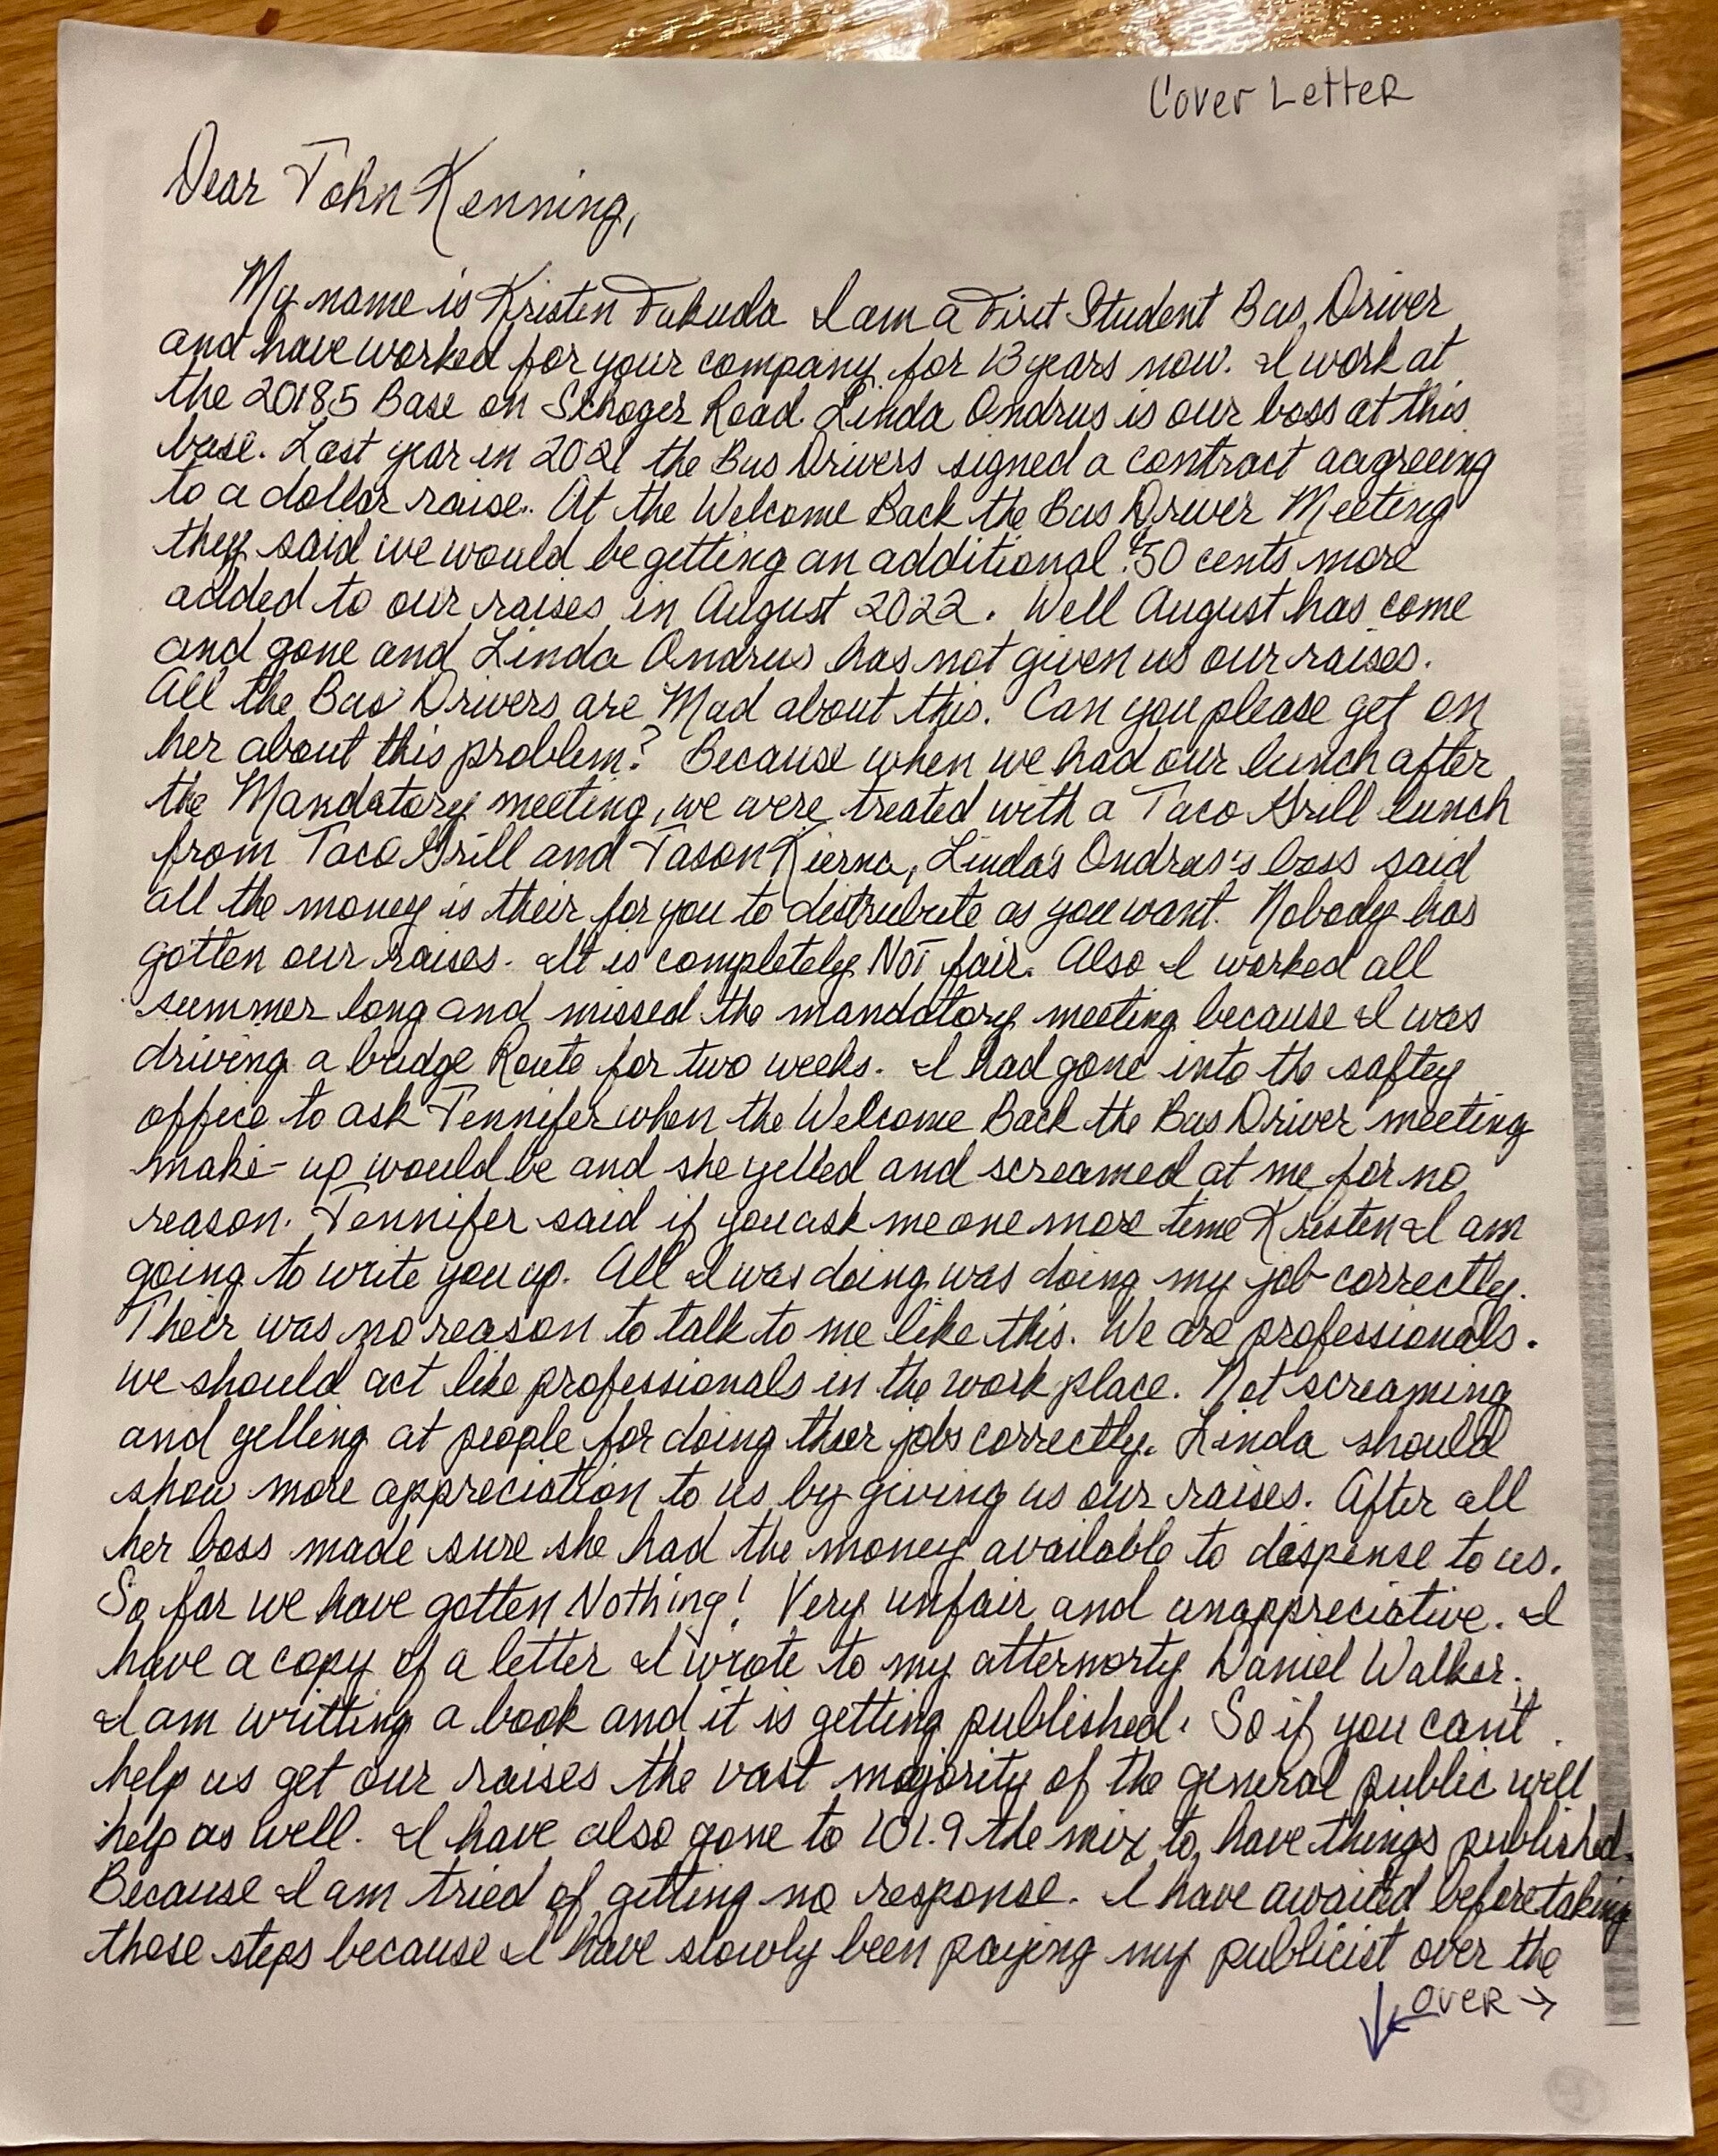 Cover Letter
Dear John Kenning,
My name is Kristen Fukuda I am a First Student Bus Driver
and have worked for your company for 13 years now. I work at
the 20185 Base on Schoger Road Linda Ondrus is our boss at this
base. Last year in 2021 the Bus Drivers signed a contract aagreeing
to a dollar raise. At the Welcome Back the Bus Driver Meeting
they said we would be getting an additional .50 cents more
added to our raises in August 2022. Well August has come
and gone and Linda Ondrus has not given us our raises.
All the Bus Drivers are Mad about this. Can you please get on
her about this problem? Because when we had our lunch after
the Mandatory meeting, we were treated with a Taco Grill lunch
from Taco Grill and Jason Kierna, Linda's Ondrus's boss said
all the money is their for you to distrubute as you want. Nobody has
gotten our raises. It is completely NOT fair. Also I worked all
summer long and missed the mandatory meeting because I was
driving a bridge Route for two weeks. I had gone into the saftey
office to ask Jennifer when the Welcome Back the Bus Driver meeting
make-up would be and she yelled and screamed at me for no
reason. Jennifer said if you ask me one more time Kristen I am
going to write you up. All I was doing was doing my job correctly.
Their was no reason to talk to me like this. We are professionals.
we should act like professionals in the work place. Not screaming
and yelling at people for doing their jobs correctly. Linda should
show more appreciation to us by giving us our raises. After all
her boss made sure she had the money available to dispense to us.
So far we have gotten Nothing! Very unfair and unappreciative. I
have a copy of a letter I wrote to my atternorty Daniel Walker.
I am writting a book and it is getting published. So if you can't
help us get our raises the vast majority of the general public will
help as well. I have also gone to 101.9 the mix to have things published.
Because I am tried of getting no response. I have awaited before taking
those steps because I have slowly been paying my publicist over the
over →